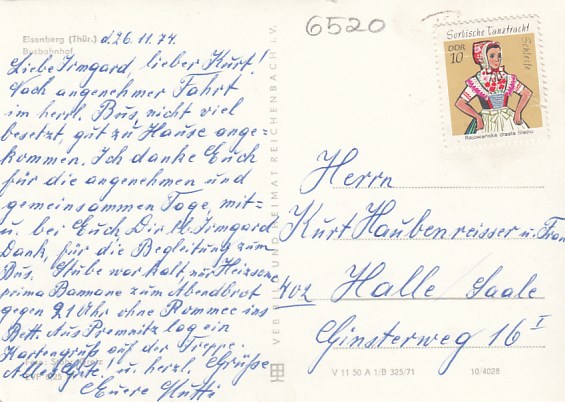 6520
Eisenberg (Thür.)
Busbahnhof
d. 26. 11. 74.
Liebe Irmgard, lieber Kurt!
Nach angenehmer Fahrt
im herrl. Bus, nicht viel
besetzt, gut zu Hause ange=
kommen. Ich danke Euch
für die angenehmen und
gemeinsammen Tage, mit=
u. bei Euch. Dir lb. Irmgard
Dank, für die Begleitung zum
Bus. Stube war kalt, nur Heizsonne
prima Banane zum Abendbrot
gegen 21 Uhr ohne Rommee ins
Bett. Aus Premnitz lag ein
Kartengruß auf der Treppe.
Alles Gute u. herzl. Grüße
Euere Mutti
VEB BILD UND HEIMAT REICHENBACH i. V.
Sorbische Tanztracht
Schleife
DDR
10
Herrn
Kurt Haubenreisser u. Frau
402 Halle / Saale
Ginsterweg 16 I
V 11 50 A 1/B 325/71
10/4028